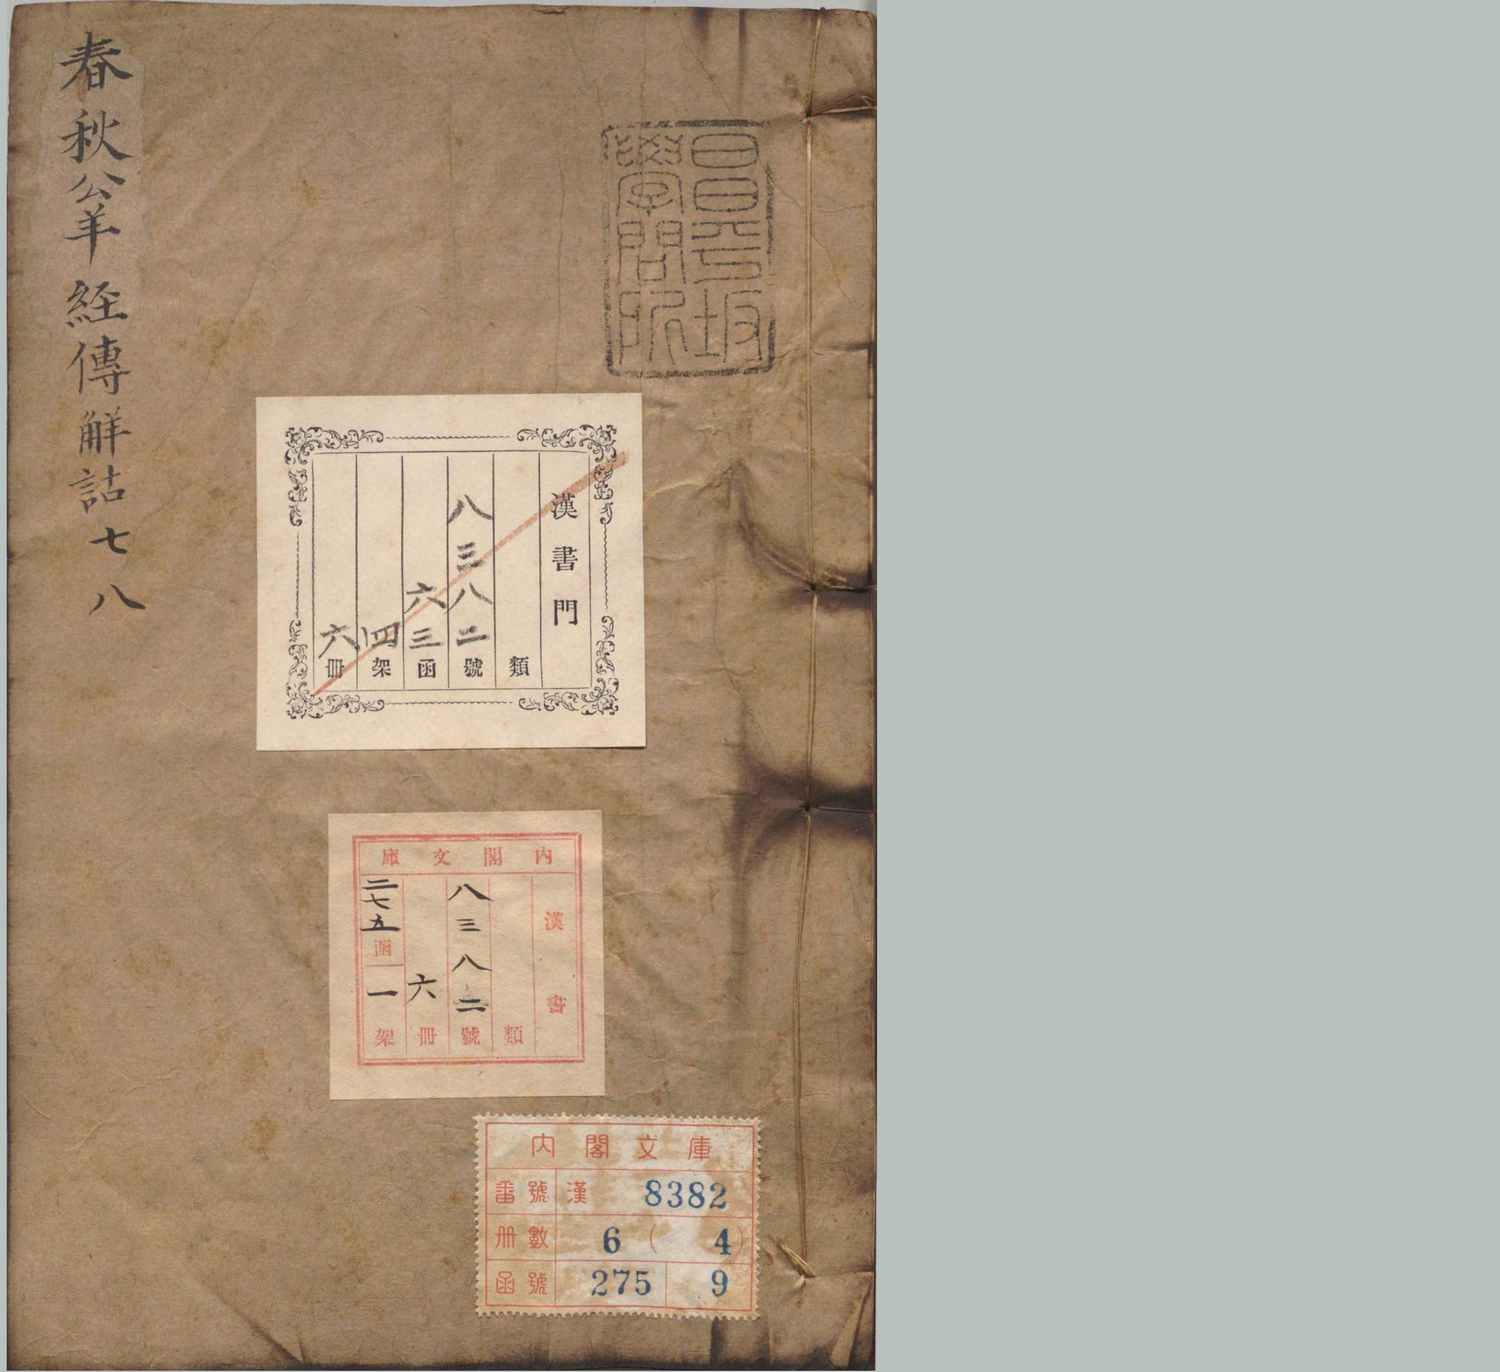 春秋公羊經傳解詁七八
昌平坂
學問所
漢書門
類
八三八二號
六三函
四架
六冊
內閣文庫
漢書
類
八三八二號
六冊
二七五函
一架
內閣文庫
番號 漢 8382
冊數 6 ( 4 )
函號 275 9